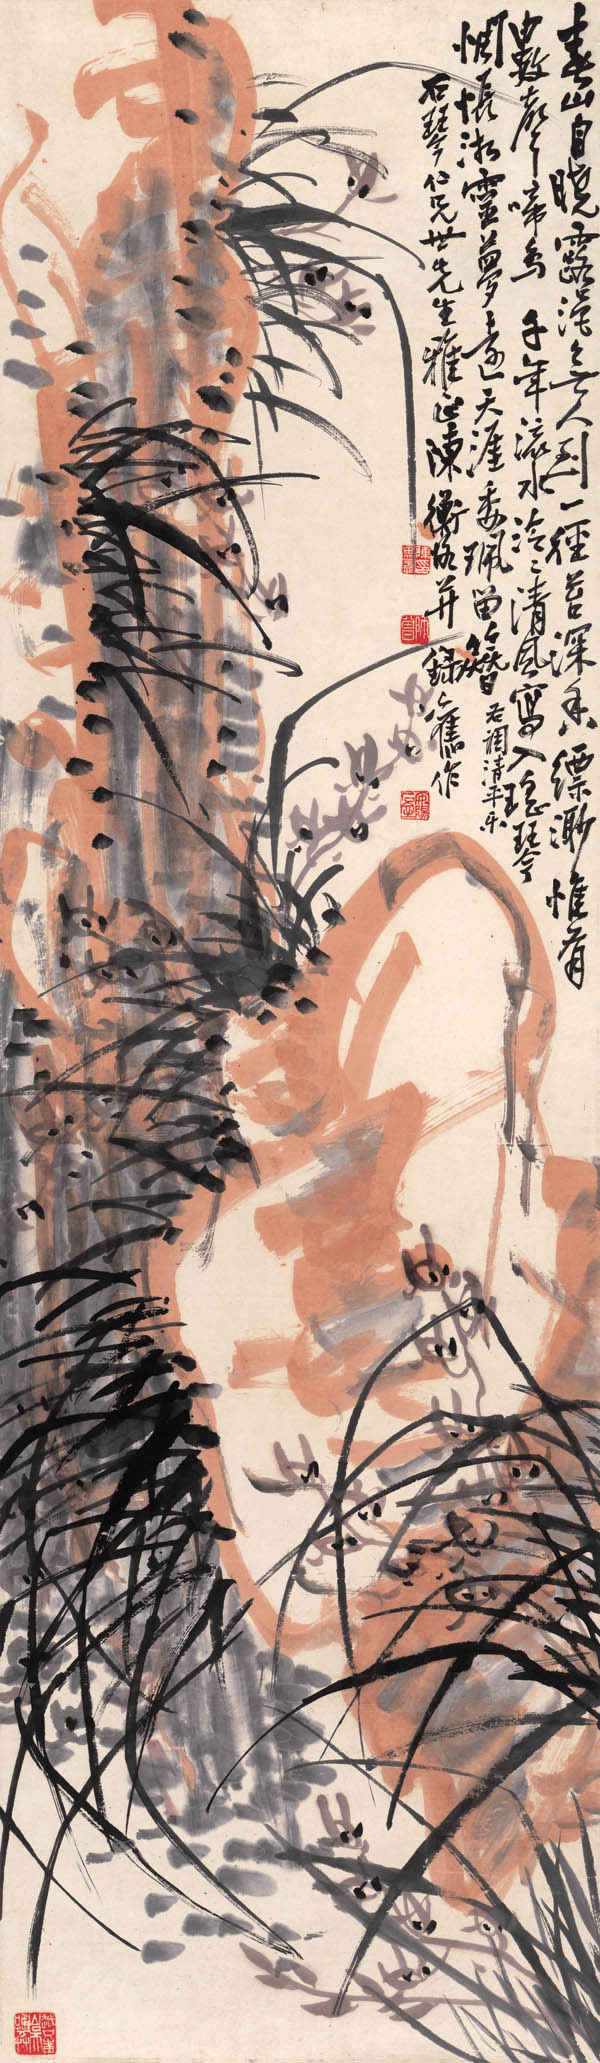 春山自曉露濕無人到一徑苔深香縹渺惟有
數聲啼鳥千年流水泠〻清風寫入瑤琴
惆悵湘靈夢遠天涯委珮留簪右調清平樂
石琴仁兄世先生雅正陳衡恪并錄舊作